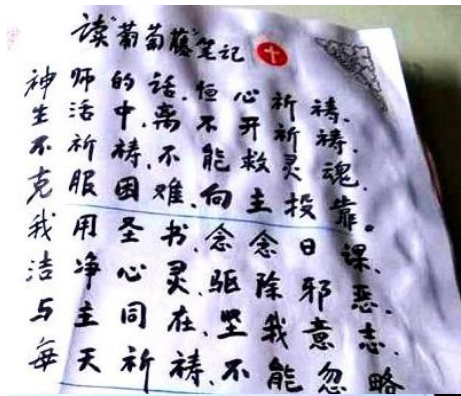 读"葡萄藤"笔记
神师的话.恒心祈祷.
生活中.离不开祈祷.
不祈祷.不能救灵魂.
克服困难.向主投靠。
我用圣书.念念日课.
洁净心灵.驱除邪恶.
与主同在.坚我意志.
每天祈祷.不能忽略